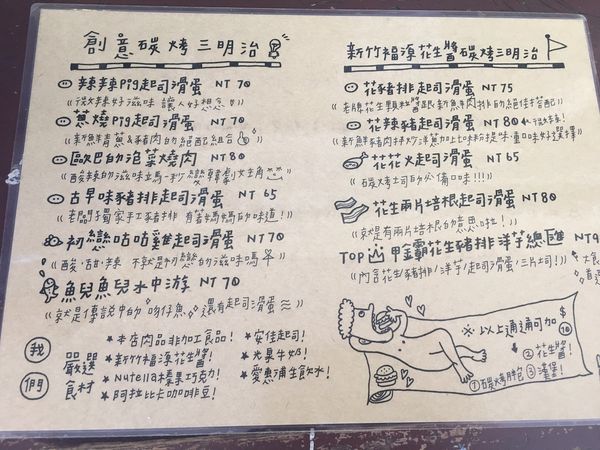 創意碳烤三明治
辣辣Pig起司滑蛋 NT 70
《微辣好滋味 讓人好想念》
蔥燒Pig起司滑蛋 NT 70
《新鮮青蔥&豬肉的絕配組合》
歐巴的泡菜燒肉 NT 80
《酸辣的滋味立馬一秒變韓劇女主角》
古早味豬排起司滑蛋 NT 65
《老闆獨家手工豬排 有著媽媽的味道!》
初戀咕咕雞起司滑蛋 NT 70
《酸甜辣 不就是初戀的滋味嗎》
魚兒魚兒水中游 NT 70
《就是傳說中的吻仔魚 還有起司滑蛋》
我們
嚴選食材
★本店肉品非加工食品!
★新竹福源花生醬!
★Nutella榛果巧克力!
★阿拉比卡咖啡豆!
★安佳起司!
★光泉牛奶!
★愛惠浦生飲水!
新竹福源花生醬碳烤三明治
花豬排起司滑蛋 NT 75
《老牌花生顆粒醬跟新鮮肉排的絕佳搭配》
花辣豬起司滑蛋 NT 80 《微辣!
《新鮮豬肉拌炒洋蔥加上味粉提味 重口味好選擇》
花花火起司蛋 NT 65
《碳烤吐司的必備口味!!!》
花生兩片培根起司滑蛋 NT 80
《就是有兩片培根的意思啦!》
TOP 甲金霸花生豬排洋芋總匯 NT9
《內含花生/豬排/洋芋/起司滑蛋/三片土司!》
※以上通通可加 $10
①碳烤月包
②花生醬!
③漢堡!